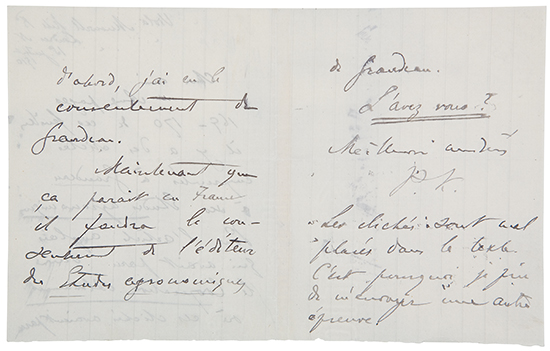 d'abord, j'ai eu le
consentement de
Grandeau.
Maintenant que
ça parait en France
il faudra le con-
sentement de l'éditeur
des Etudes agronomiques
de Grandeau.
L'avez vous?
Meilleures amitiés
P. K.
Les clichés sont mal
placés dans le texte
C'est pourquoi je prie
de m'envoyer une autre
épreuve.